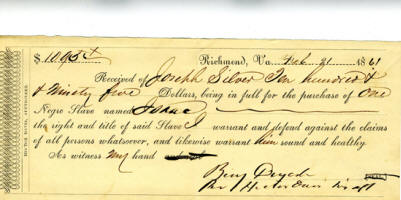 $ 1095 Richmond, Va. Feb 21 1861
Received of Joseph Silver Ten hundred &
& Ninety five Dollars, being in full for the purchase of One
Negro Slave named Isaac
the right and title of said Slave I warrant and defend against the claims
of all persons whatsoever, and likewise warrant him sound and healthy.
As witness my hand
Benj